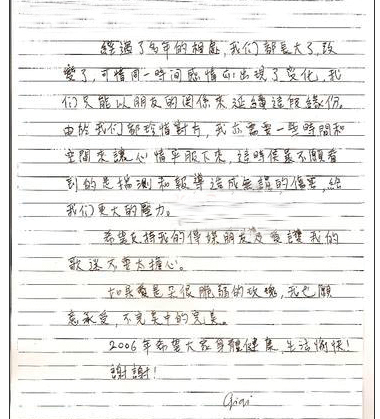 經過了多年的相處,我们都長大了,改
變了,可惜同一時間感情也出現了变化,我
们只能以朋友的関係來延續這段緣份。
由於我们都珍惜對方,我亦需要一些時間和
空間來讓心情平服下來,這時侯最不願看
到的是揣測和報導造成無謂的傷害,給
我们更大的壓力。
希望支持我的傳媒朋友及愛護我的
歌迷不要太擔心。
如果愛是朵很脆弱的玫瑰,我也願
意承受,不完美中的完美。
2006年希望大家身體健康,生活愉快!
謝謝!
Gigi